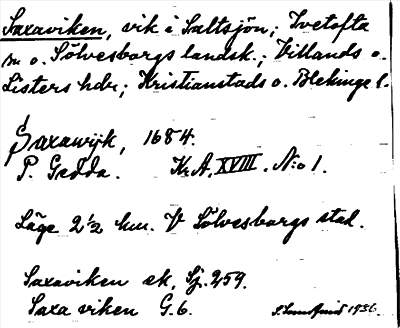 Saxaviken, vik i Saltsjön; Ivetofta
sn o. Sölvesborgs landsk.; Villands o.
Listers hdr; Kristianstads o. Blekinge l.
Saxawijk, 1684.
P. Gedda. Kr.A. XVIII. N:o 1.
Läge 2 1/2 km. V Sölvesborgs stad.
Saxaviken ek, Sj. 259.
Saxa viken G.6.
1936.